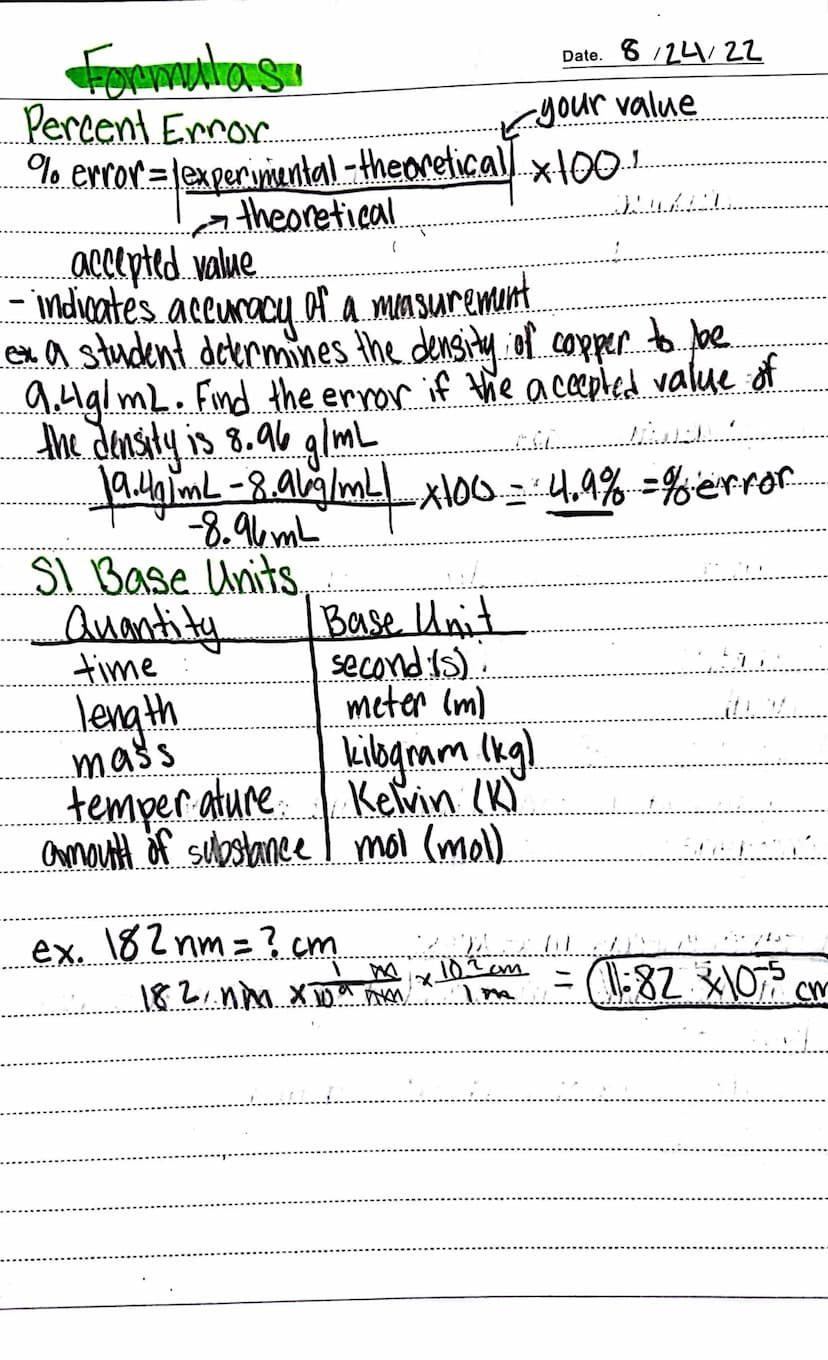 Formulas
Date. 8/24/22
Percent Error
your value
% error = |experimental - theoretical| x100
theoretical
accepted value
- indicates accuracy of a measurement
ex a student determines the density of copper to be
9.4g/mL. Find the error if the accepted value of
the density is 8.96 g/mL
|9.4g/mL - 8.96g/mL| x100 = 4.9% = % error
-8.96mL
SI Base Units
Quantity | Base Unit
time | second (s)
length | meter (m)
mass | kilogram (kg)
temperature | Kelvin (K)
amount of substance | mol (mol)
ex. 182 nm = ? cm
182 nm x 1 m / 10⁹ nm x 10² cm / 1 m = 1.82 x10⁻⁵ cm